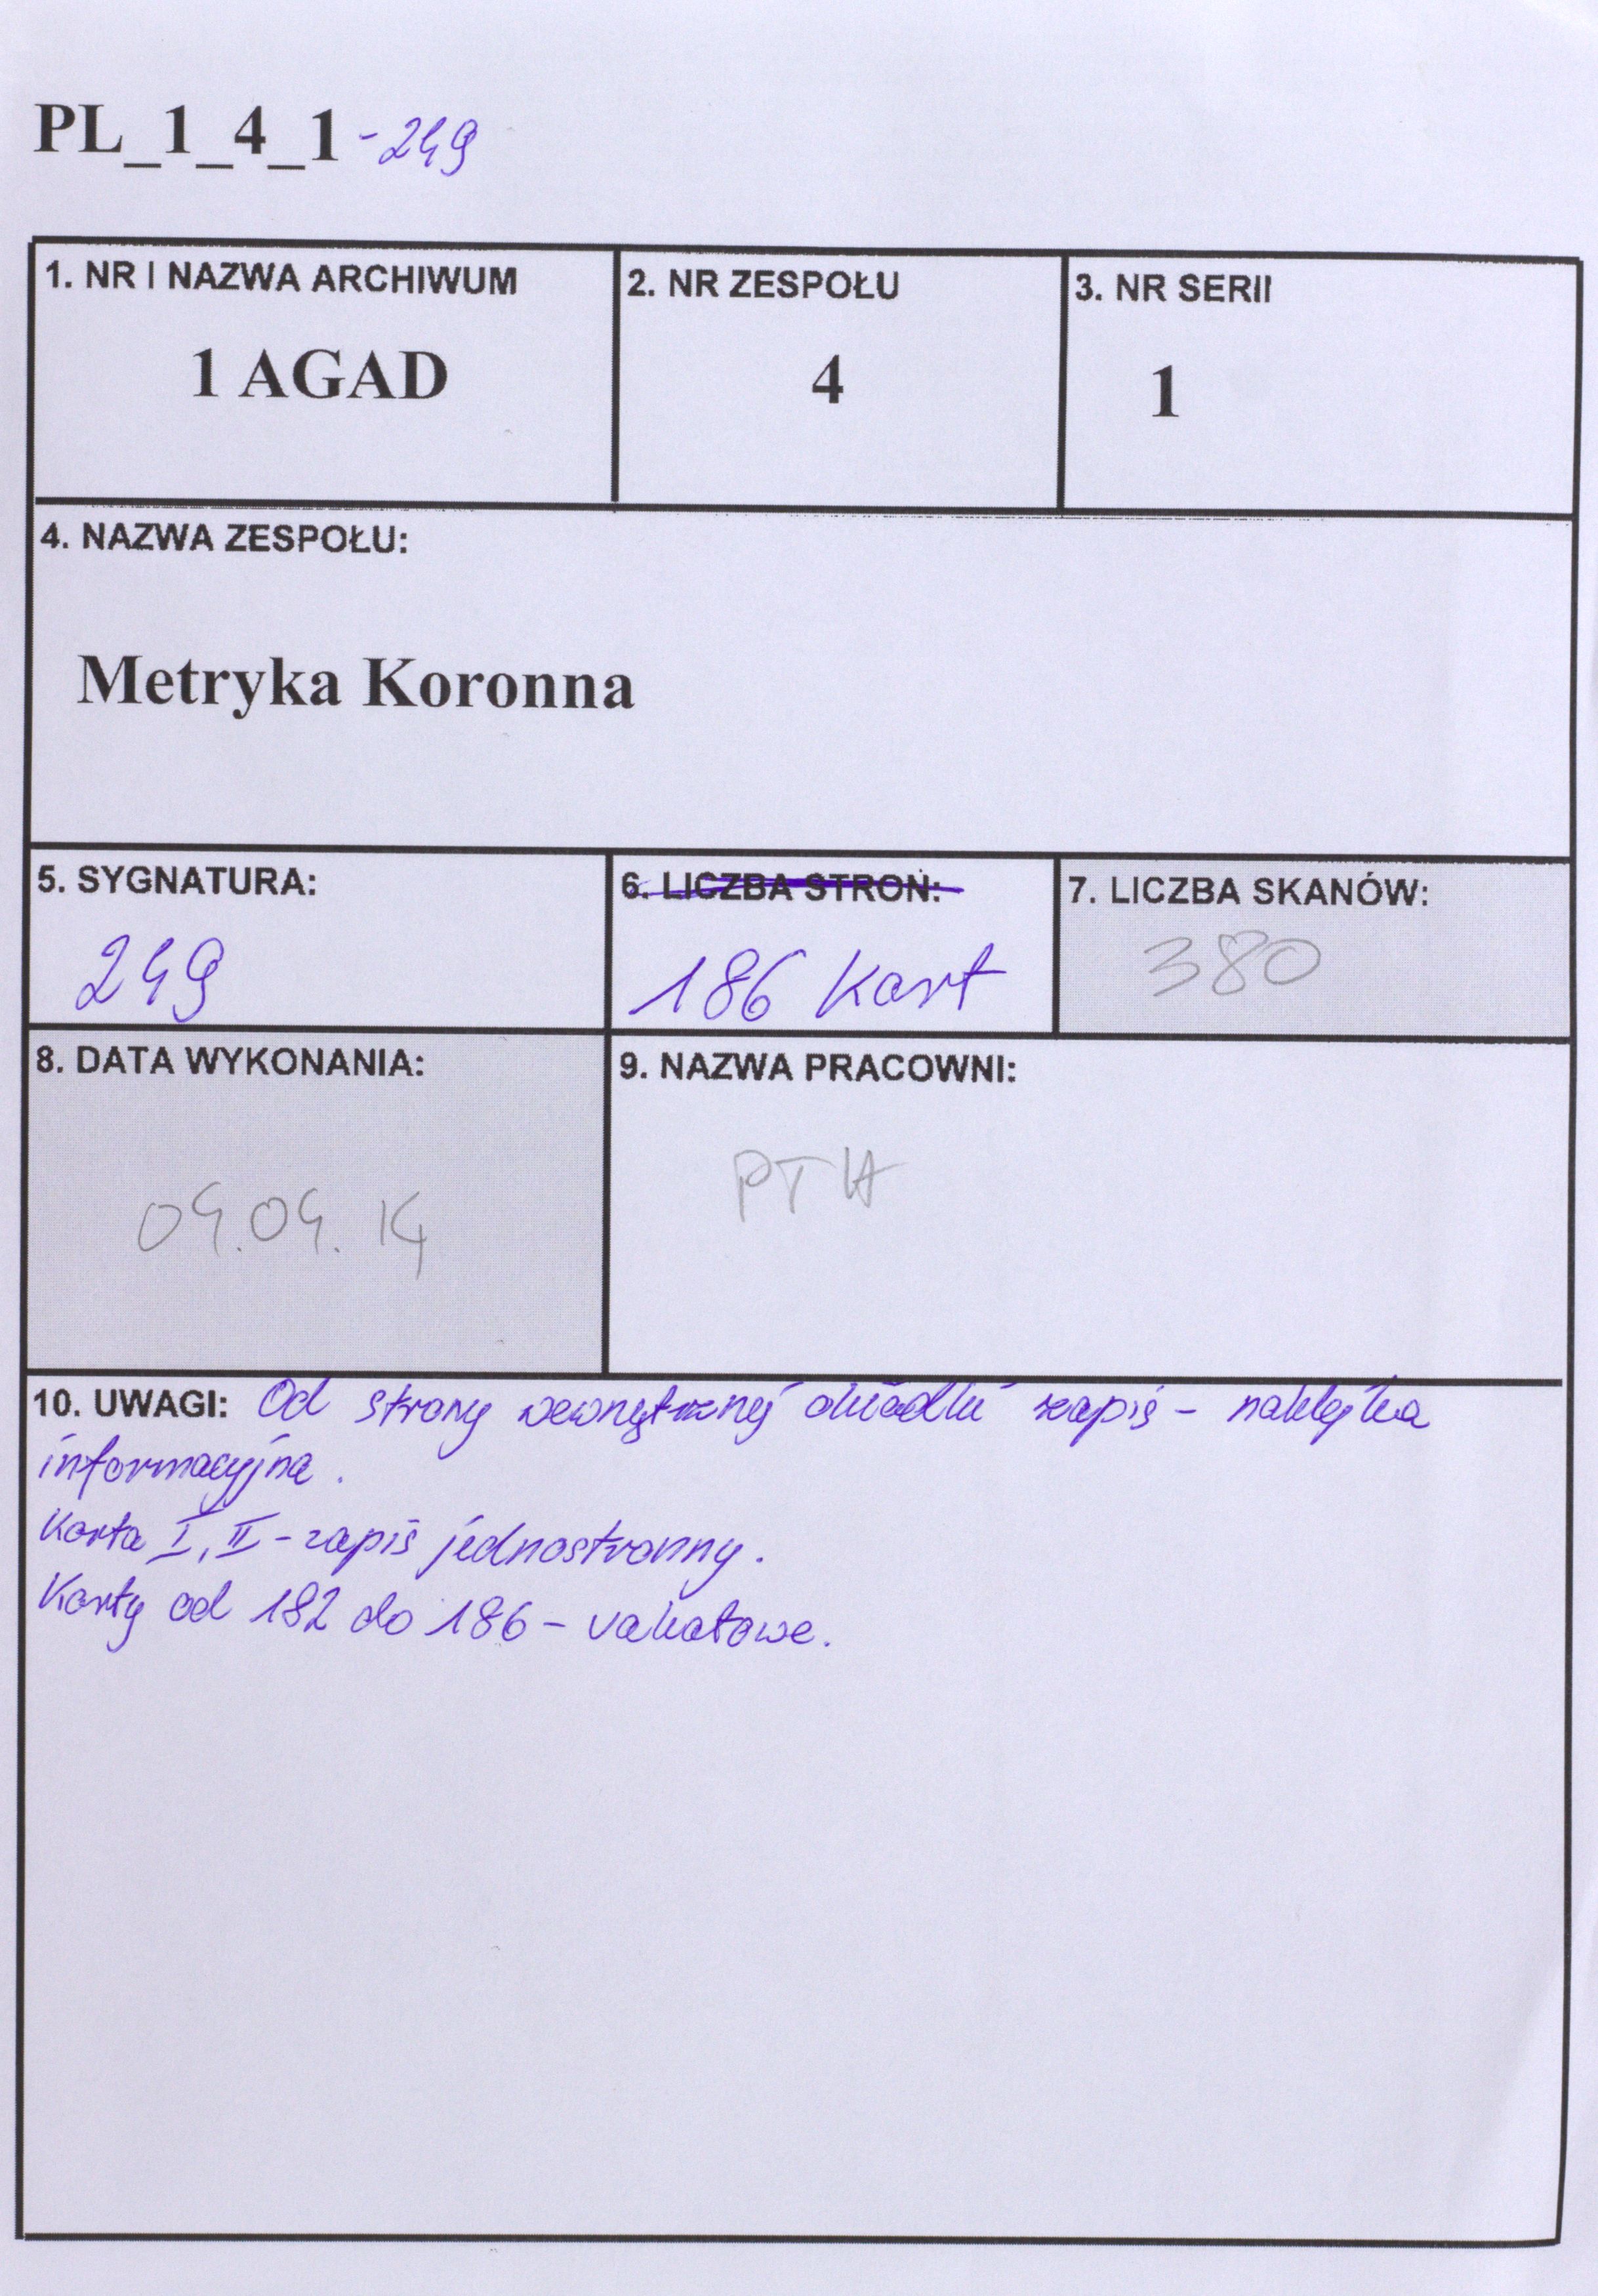 PL_1_4_1 -249
1. NR I NAZWA ARCHIWUM
1 AGAD
2. NR ZESPOŁU
4
3. NR SERII
1
4. NAZWA ZESPOŁU:
Metryka Koronna
5. SYGNATURA:
249
6. LICZBA STRON:
186 kart
7. LICZBA SKANÓW:
380
8. DATA WYKONANIA:
04.04.14
9. NAZWA PRACOWNI:
10. UWAGI: Od strony wewnętrznej okładki zapis - naklejka
informacyjna.
Karta I, II - zapis jednostronny.
Karty od 182 do 186 - vakatowe.